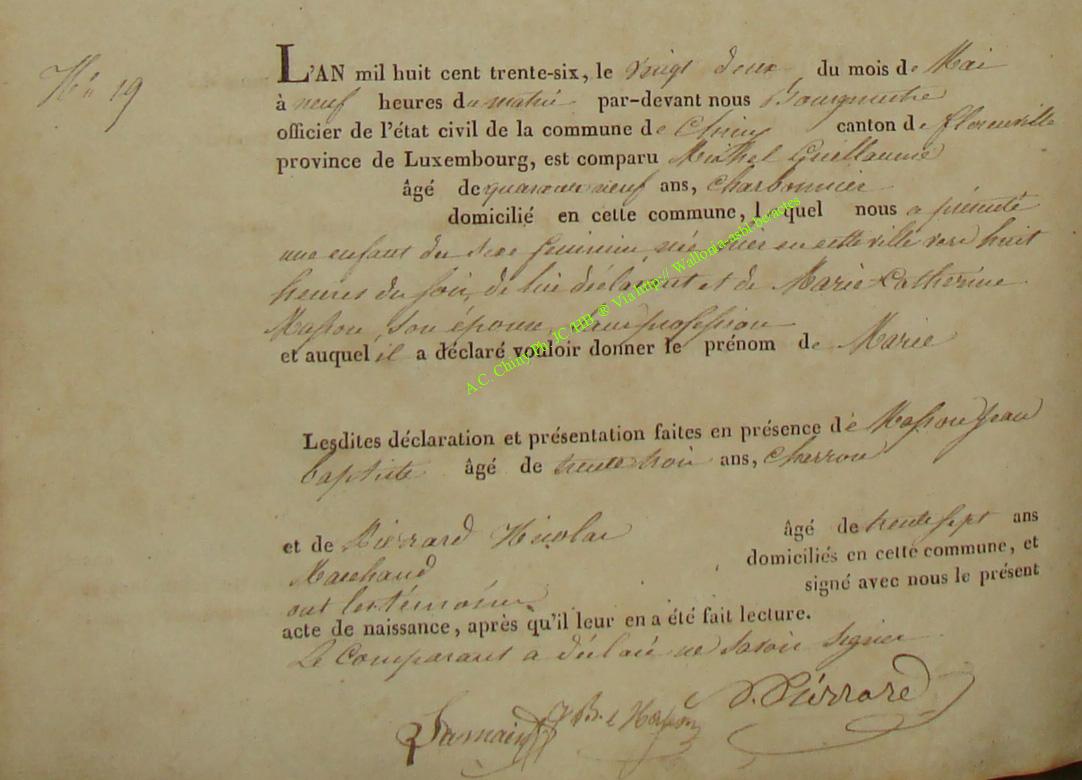 No 19
L'AN mil huit cent trente-six, le vingt deux du mois de Mai
à neuf heures du matin par-devant nous Bourgmestre
officier de l'état civil de la commune de Chiny canton de florenville
province de Luxembourg, est comparu Michel Guillaume
âgé de quarante neuf ans, Charbonnier
domicilié en cette commune, lequel nous a présenté
une enfant du sexe féminin, née hier en cette ville vers huit
heures du soir, de lui déclarant et de Marie Catherine
Masson, son épouse, sans profession
et auquel il a déclaré vouloir donner le prénom de Marie
A.C. Chiny Ph. JC HB ® Via http:// Wallonia-asbl-be/actes
Lesdites déclaration et présentation faites en présence de Masson Jean
baptiste âgé de trente trois ans, Charron
et de Pierrard Nicolas âgé de trente sept ans
Marchand domiciliés en cette commune, et
ont les témoins signé avec nous le présent
acte de naissance, après qu'il leur en a été fait lecture.
Le Comparant a déclaré ne savoir signer
J B Masson Pierrard